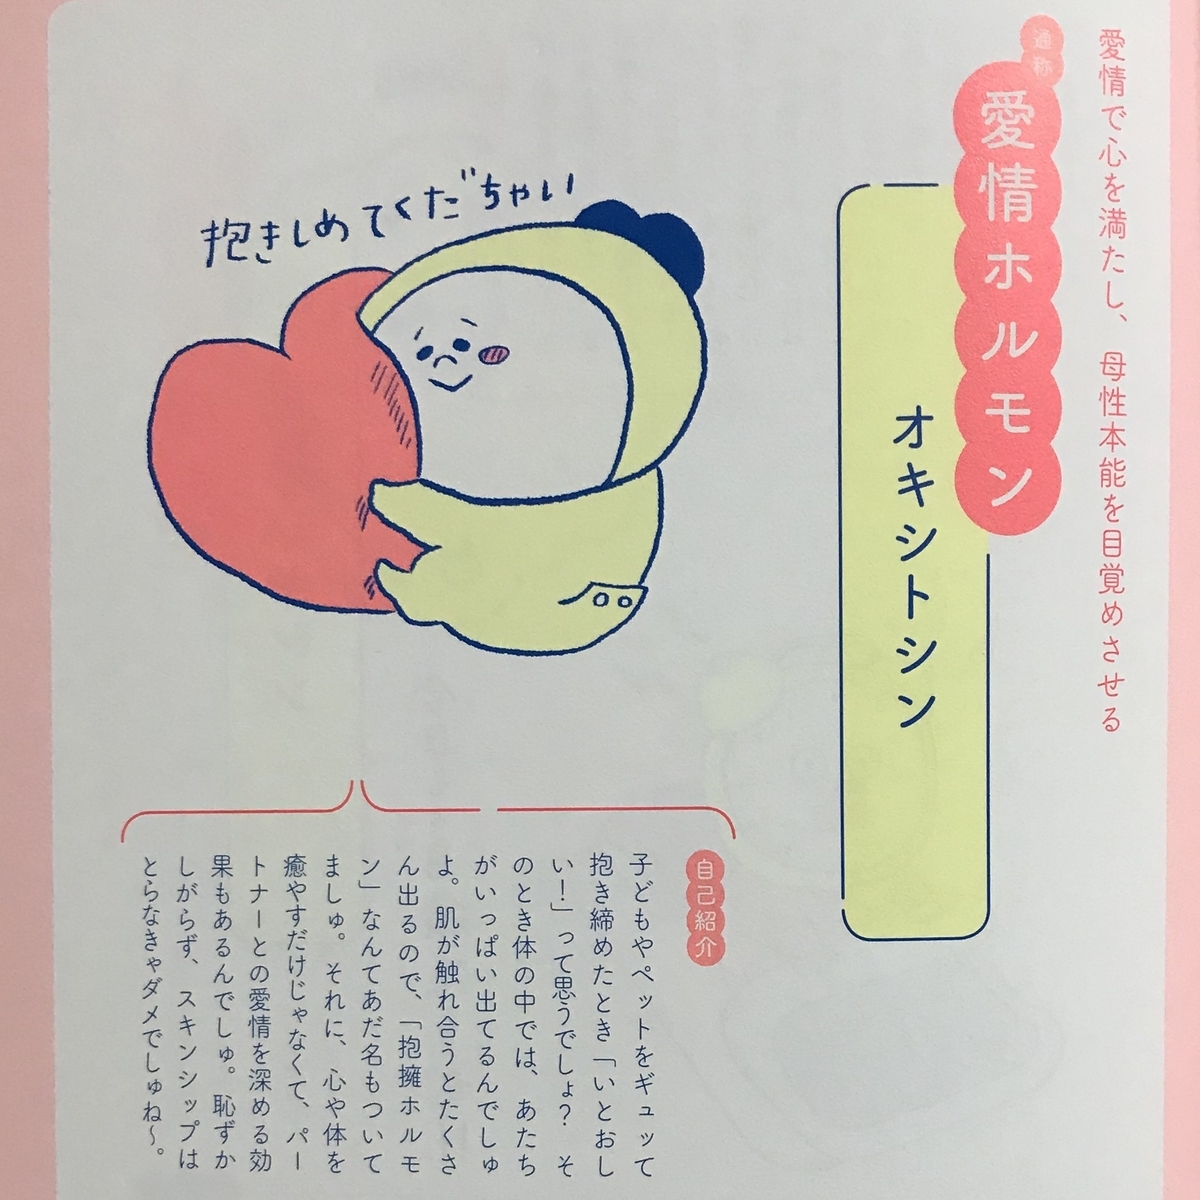 愛情で心を満たし、母性本能を目覚めさせる
通称
愛情ホルモン
オキシトシン
抱きしめてくだちゃい
自己紹介
子どもやペットをギュッて
抱き締めたとき「いとおし
い！」って思うでしょ？　そ
のとき体の中では、あたち
がいっぱい出てるんでしゅ
よ。肌が触れ合うとたくさ
ん出るので、「抱擁ホルモ
ン」なんてあだ名もついて
ましゅ。それに、心や体を
癒やすだけじゃなくて、パー
トナーとの愛情を深める効
果もあるんでしゅ。恥ずか
しがらず、スキンシップは
とらなきゃダメでしゅね〜。